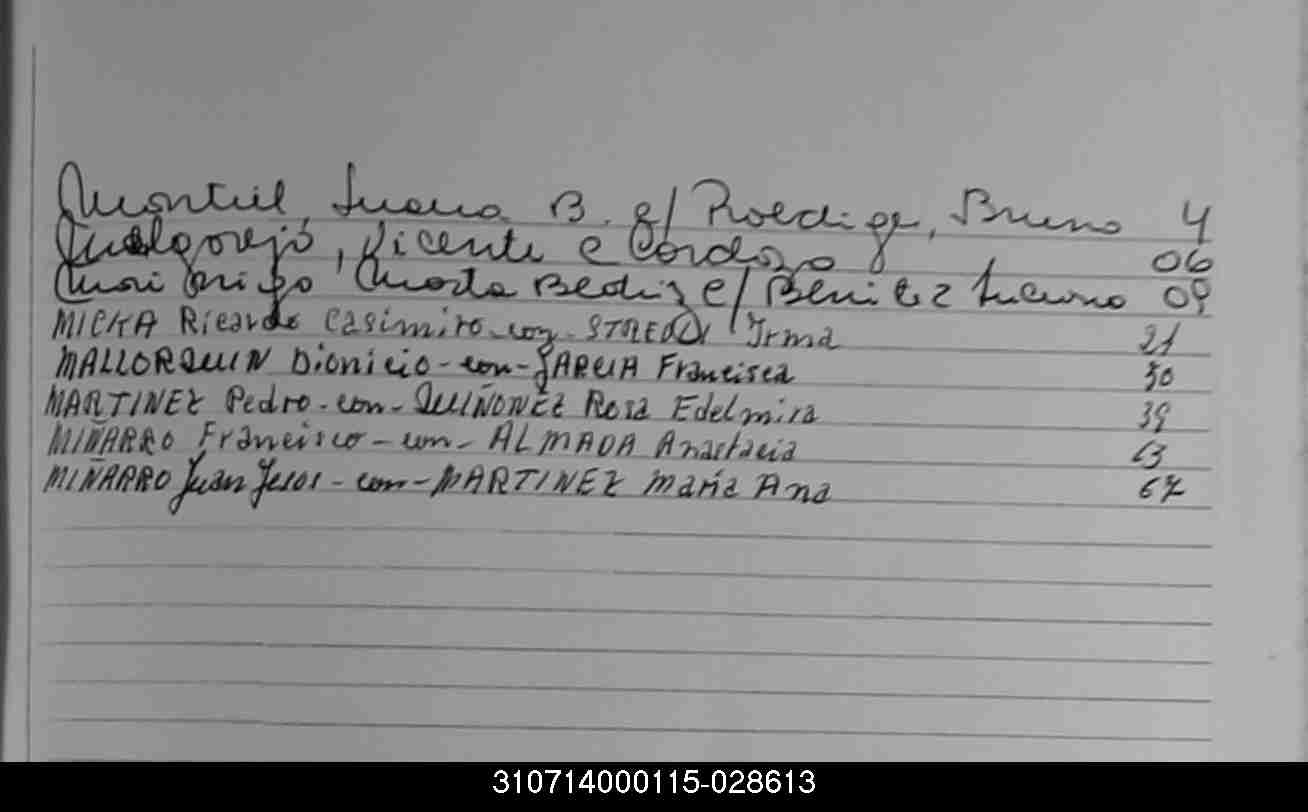 Montiel, Juana B. c/ Roediger, Bruno 4
Melgarejo, Vicente c Cardozo 06
Marta Beatriz c/ Benitez Luciano 09
MICKA Ricardo Casimiro - con - Irma 21
MALLORQUIN Dionicio - con - GARCIA Francisca 30
MARTINEZ Pedro - con - QUIÑONEZ Rosa Edelmira 39
MIÑARRO Francisco - con - ALMADA Anastacia 63
MIÑARRO Juan Jesos - con - MARTINEZ María Ana 67
310714000115-028613